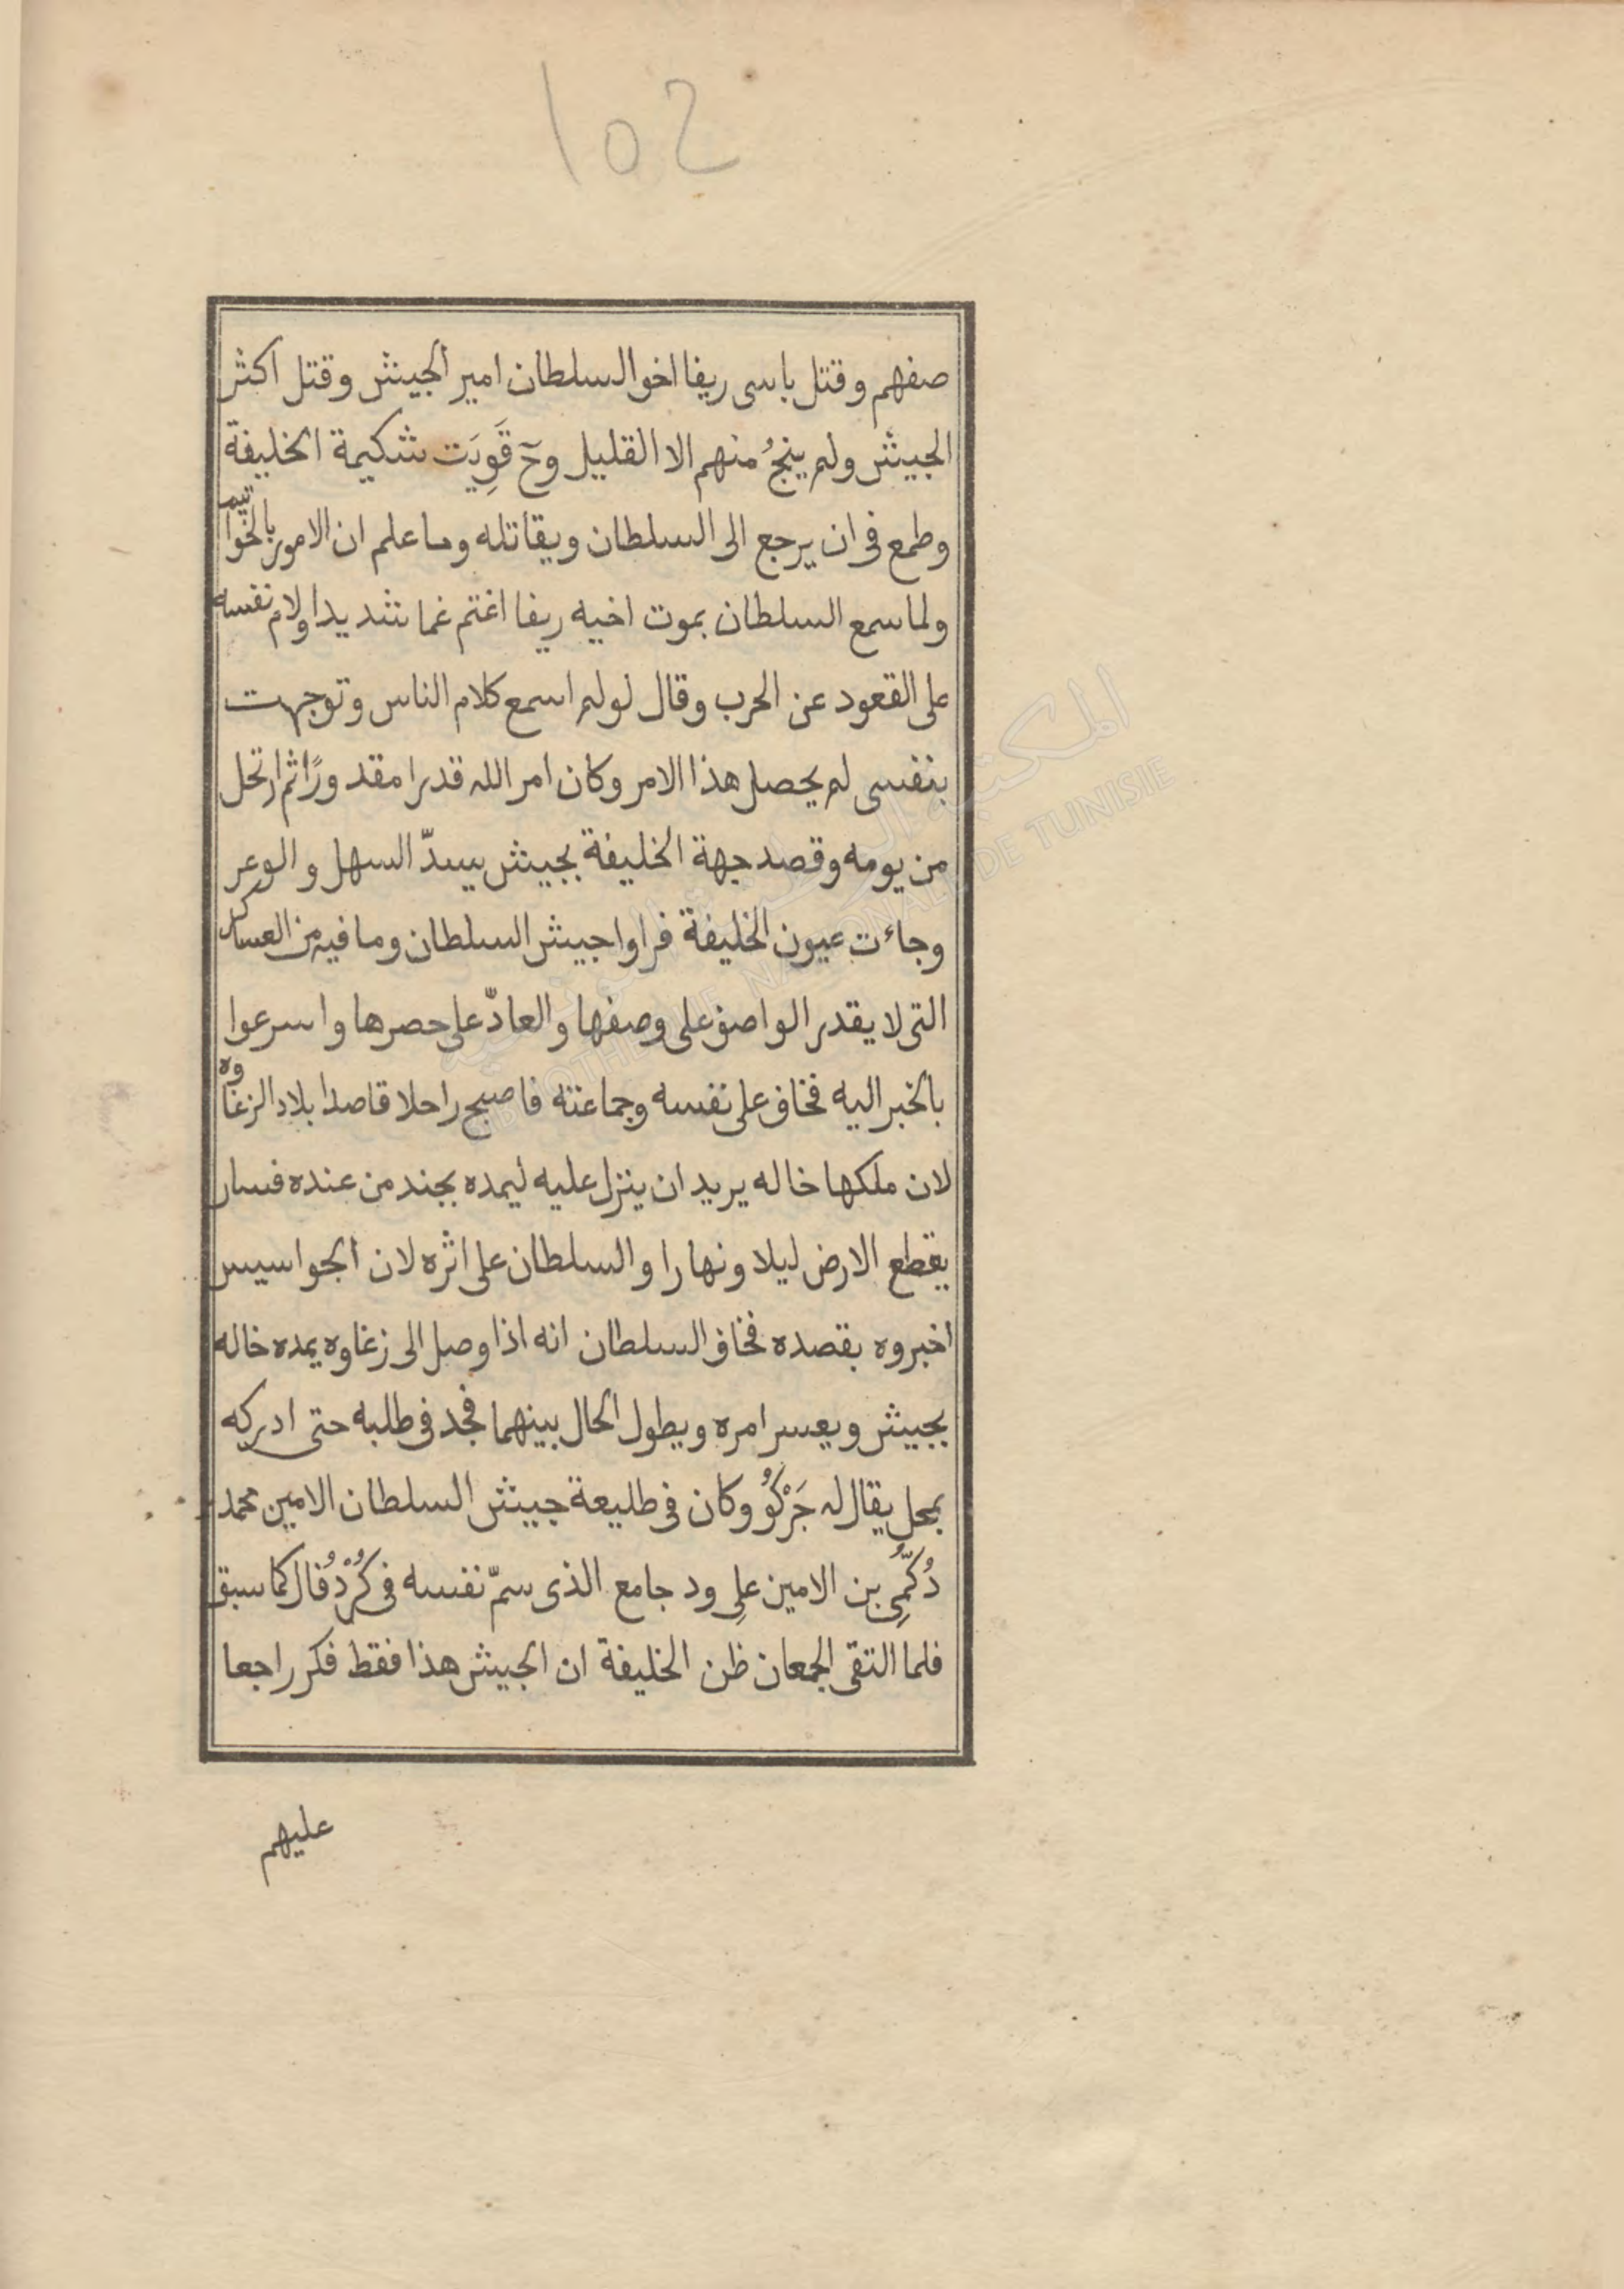 102
صفهم وقتل باسى ريفا اخو السلطان امير الجيش وقتل اكثر
الجيش ولم ينجُ منهم الا القليل وحٓ قَوِيَت شكيمة الخليفة
وطمع فى ان يرجع الى السلطان ويقاتله وما علم ان الامور بالخواتيم
ولما سمع السلطان بموت اخيه ريفا اغتم غما شديدا ولام نفسه
على القعود عن الحرب وقال لو لم اسمع كلام الناس وتوجهت
بنفسى لم يحصل هذا الامر وكان امر الله قدرا مقدورًا ثم ارتحل
من يومه وقصد جهة الخليفة بجيش يسدّ السهل والوعر
وجاءت عيون الخليفة فراوا جيش السلطان وما فيه من العساكر
التى لا يقدر الواصف على وصفها والعادّ على حصرها واسرعوا
بالخبر اليه فخاف على نفسه وجماعته فاصبح راحلا قاصدا بلاد الزغاوه
لان ملكها خاله يريد ان ينزل عليه ليمده بجند من عنده فسار
يقطع الارض ليلا ونهارا والسلطان على اثره لان الجواسيس
اخبروه بقصده فخاف السلطان انه اذا وصل الى زغاوه يمده خاله
بجيش ويعسر امره ويطول الحال بينهما فجد فى طلبه حتى ادركه
بمحل يقال له جَرْكُو وكان فى طليعة جيش السلطان الامين محمد
دُكُّمِى بن الامين علِى ود جامع الذى سمّ نفسه فى كُرْدُفال كما سبق
فلما التقى الجمعان ظن الخليفة ان الجيش هذا فقط فكر راجعا
عليهم
المكتبة الوطنية التونسية
BIBLIOTHEQUE NATIONALE DE TUNISIE